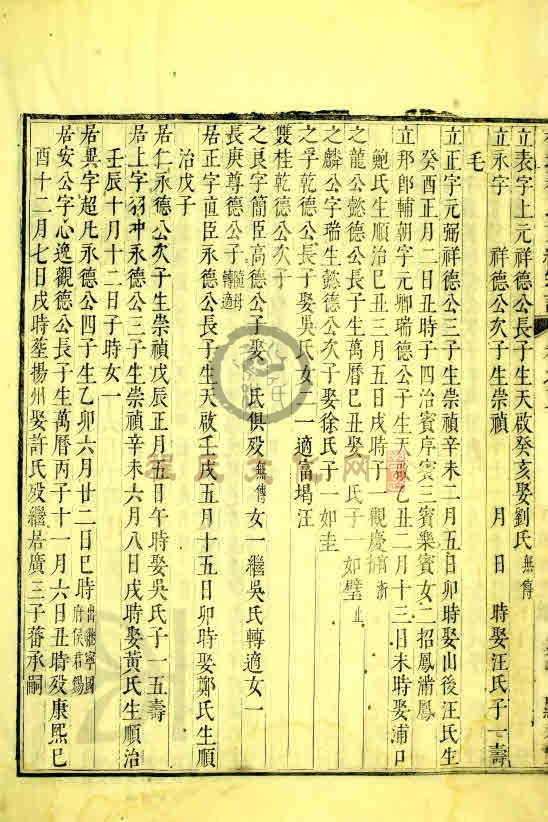 立表字上元祥德公長子生天啟癸亥娶劉氏無傳
立永字 祥德公次子生崇禎 月 日 時娶汪氏子一壽
毛
立正字元弼祥德公三子生崇禎辛未二月五日卯時娶山後汪氏生
癸酉正月二日丑時子四治賓序賓三賓樂賓女二招鳳滿鳳
立邦郎輔朝字元卿瑞德公子生天啟乙丑二月十三日未時娶浦口
鮑氏生順治己丑三月五日戌時子一觀慶
之龍公懿德公長子生萬曆己丑娶 氏子一如璧止
之麟公字瑞生懿德公次子娶徐氏子一如圭
之孚乾德公長子娶吳氏女二一適富堨汪
雙桂乾德公次子
之良字簡臣高德公子娶 氏俱歿無傳女一繼吳氏轉適女一
長庚尊德公子隨母轉適
居正字直臣永德公長子生天啟壬戌五月十五日卯時娶鄭氏生順
治戊子
居仁永德公次子生崇禎戊辰正月五日午時娶吳氏子一五壽
居上字羽冲永德公三子生崇禎辛未六月八日戌時娶黃氏生順治
壬辰十月十二日子時女一
居異字超凡永德公四子生乙卯六月廿二日巳時出繼寧國府侯君錫
居安公字心逸觀德公長子生萬曆丙子十一月六日丑時歿康熙己
酉十二月七日戌時塟揚州娶許氏歿繼居廣三子蕃承嗣
程氏文化网